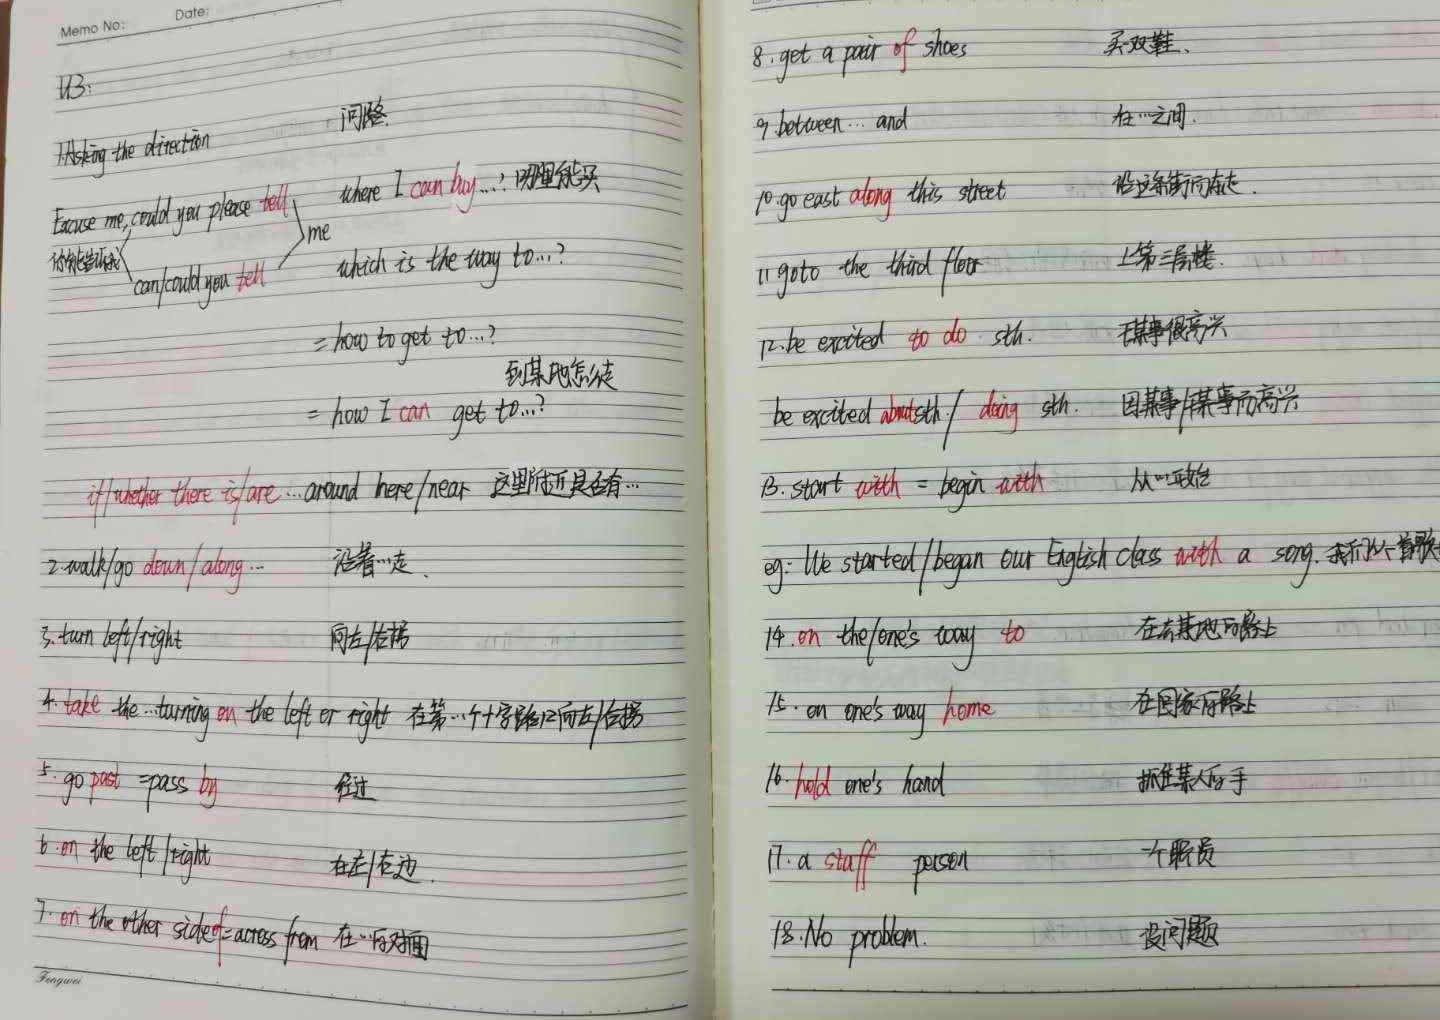 Memo No:
Date:
U3:
1.Asking the direction 问路.
Excuse me, could you please tell
你能告诉我
can/could you tell
me
where I can buy...? 哪里能买
which is the way to...?
= how to get to...?
到某地怎么走
= how I can get to...?
if/whether there is/are ...around here/near 这里附近是否有…
2.walk/go down/along... 沿着…走.
3.turn left/right 向左/右拐
4.take the...turning on the left or right 在第…个十字路口向左/右拐
5.go past =pass by 经过
6.on the left/right 在左/右边.
7.on the other side of=across from 在…的对面
Fengwei
8.get a pair of shoes 买双鞋.
9.between... and 在…之间.
10.go east along this street 沿这条街向东走.
11 go to the third floor 上第三层楼.
12.be excited to do sth. 干某事很高兴
be excited about sth/ doing sth. 因某事/干某事而高兴
13.start with = begin with 从…开始
eg: We started/began our English class with a song. 我们以一首歌
14.on the/one's way to 在去某地的路上
15.on one's way home 在回家的路上
16.hold one's hand 抓住某人的手
17.a staff person 一个职员
18.No problem. 没问题